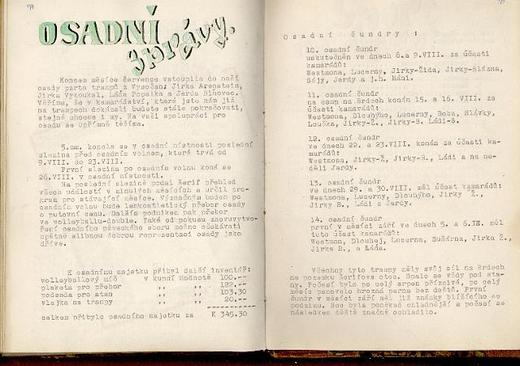 OSADNÍ
zprávy.
Koncem měsíce července vstoupila do naší
osady parta trampů z Vysočan: Jirka Arenstein,
Jirka Vyskoušil, Láďa Špinka a Jarda Hlbovec.
Věříme, že v kamarádství, které jste nám již
na trampech dokázali budete stále pokračovati,
stejně chceme i my. Na vaši spolupráci pro
osadu se upřímně těšíme.
5.m. konala se v osadní místnosti poslední
slezina před osadním volnem, které trvá od
9.VIII. do 23.VIII.
První slezina po osadním volnu koná se
26.VIII. v osadní místnosti.
Na poslední slezině podal šerif přehled
všech událostí v minulých měsících a určil pro-
gram pro stávající měsíce. Význačným bodem po
osadním volnu bude lehkoatletický přebor osady
o putovní cenu. Dalším podnikem pak přebor
ve volleyballu-double. Také od pokusu znovuvytvo-
ření osadního pěveckého sboru možno očekávati
opětně slibnou dobrou representaci osady jako
dříve.
K osadnímu majetku přibyl další inventář:
volleyballový míč v kupní hodnotě 100.--
plaketa pro přebor ,, ,, 122.--
podsada pro stan ,, ,, 103.30
vlajka na trampy ,, ,, 20.--
celkem přibylo osadního majetku za K 345.30
Osadní šundry:
10. osadní šundr
uskutečněn ve dnech 8.a 9.VIII. za účasti
kamarádů:
Westmona, Lucerny, Jirky-Žida, Jirky-Blázna,
Gejy, Jardy a j.h. Máni.
11. osadní šundr
na osm na Brdech konán 15. a 16. VIII. za
účasti kamarádů:
Westmona, Dlouhýho, Lucerny, Boba, Slávky,
Louška, Jirky-Ž., Jirky-B. Ládi-S.
12. osadní šundr
ve dnech 22. a 23.VIII. konán za účasti ka-
marádů:
Westmona, Jirky-Ž, Jirky-B., Ládi a na ne-
děli Jardy.
13. osadní šundr
ve dnech 29. a 30.VIII. měl účast kamarádů:
Westmona, Lucerny, Dlouhýho, Jirky Ž.,
Jirky B., Ládi a Jardy.
14. osadní šundr
první v měsíci září ve dnech 5. a 6.IX. měl
tuto účast kamarádů:
Westmon, Dlouhej, Lucerna, Jirka Ž.,
Jirka B., a Láďa.
Všechny tyto trampy měly svůj cíl na Brdech
na pozemku šerifova otce. Spalo se vždy pod sta-
ny. Počasí bylo po celý srpen příznivé, po celý
měsíc panovalo hrozné parno bez deště. První
šundr v měsíci září nesl již známky blížícího se
podzimu. Noc byla poněkud chladnější a počasí se
následkem deště značně ochladilo.